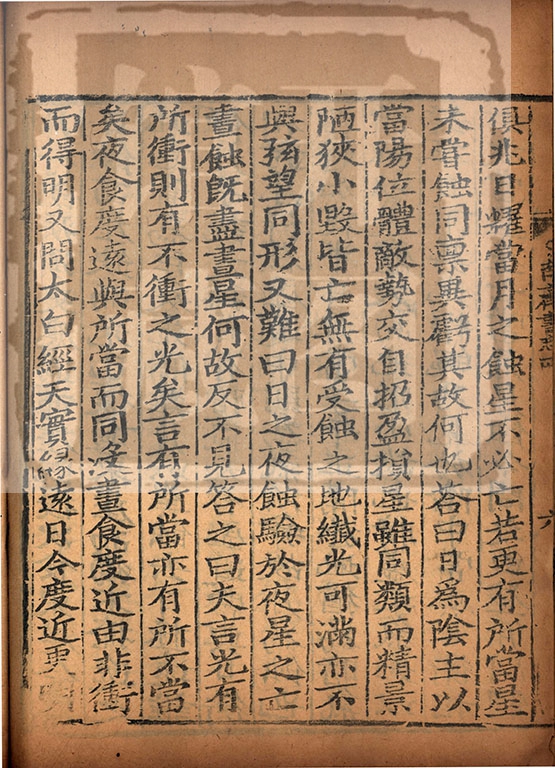 俱兆日耀當月之蝕星不必亡若更有所當星
未甞蝕同稟異虧其故何也荅曰日爲陰主以
當陽位體敵勢交自招盈損星雖同類而精景
陋狹小毀皆亡無有受蝕之地纖光可滿亦不
與弦望同形又難曰日之夜蝕驗於夜星之亡
晝蝕旣盡晝星何故反不見答之曰夫言光有
所衝則有不衝之光矣言有所當亦有所不當
矣夜食度遠與所當而同没晝食度近由非衝
而得明又問太白經天實緣遠日今度近更明